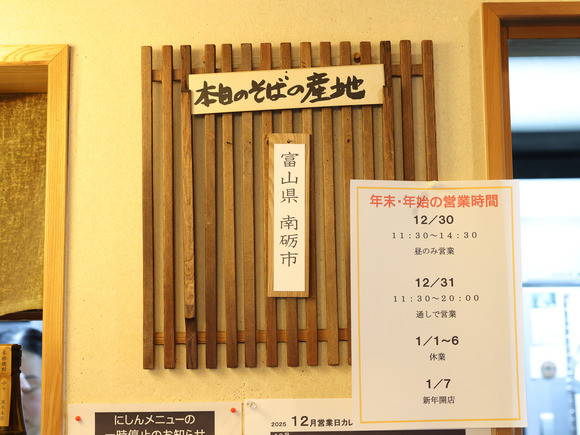 本日のそばの産地
富山県 南砺市
年末・年始の営業時間
12/30
11:30～14:30
昼のみ営業
12/31
11:30～20:00
通しで営業
1/1~6
休業
1/7
新年開店
にしんメニューの
一時停止のお知らせ
2025 12月営業日カレ